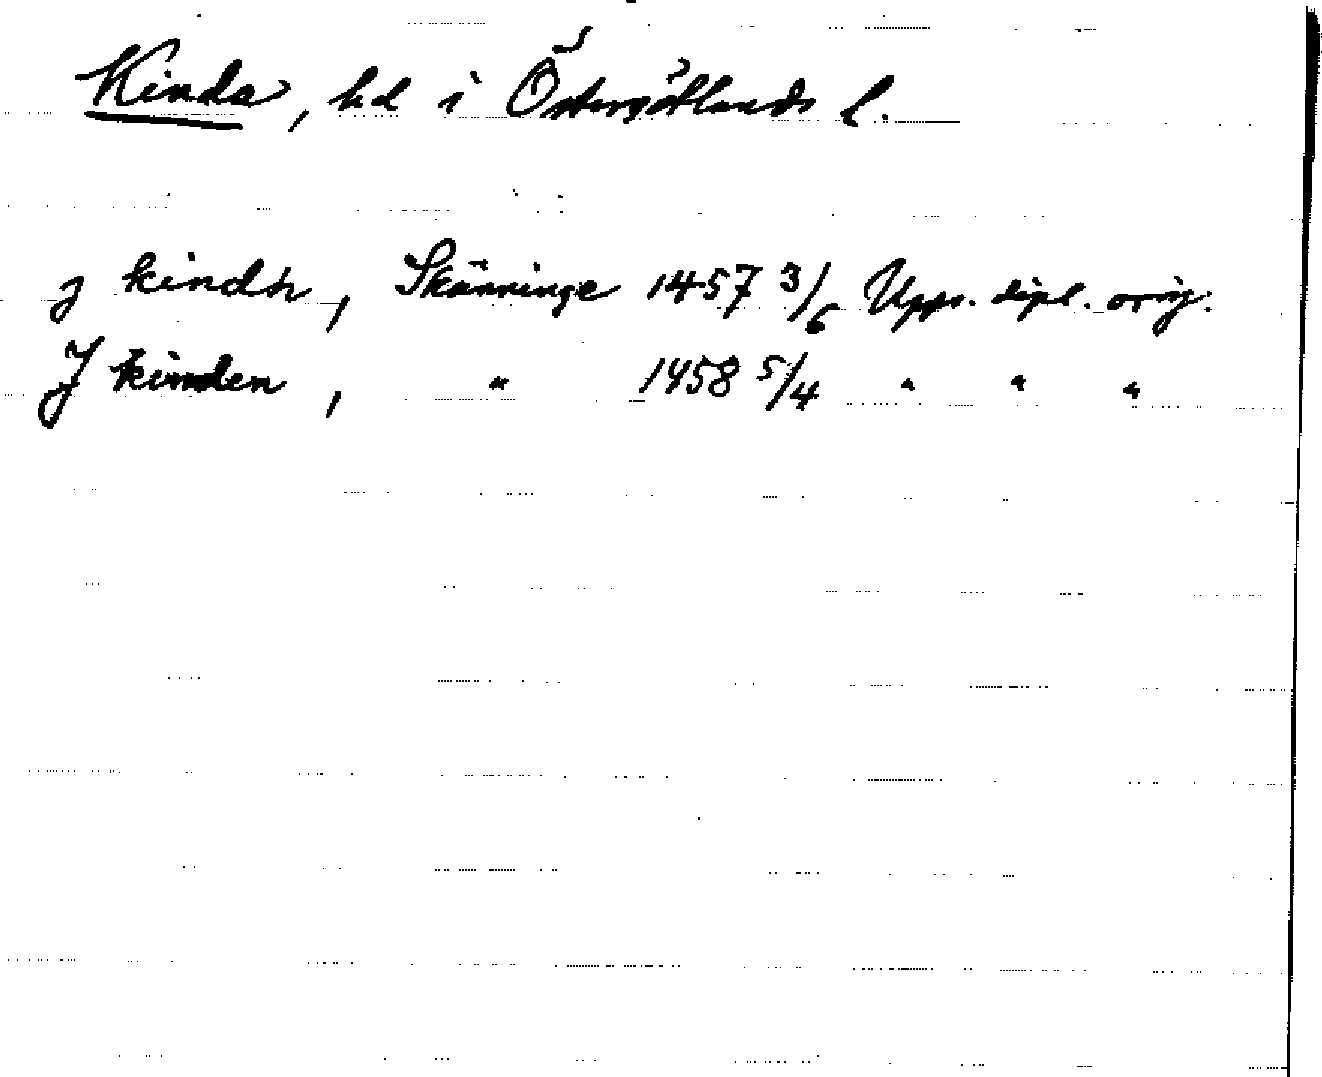 Kinda, hd i Östergötlands l.
j kindh, Skänninge 1457 3/6 Upps. dipl. orig.
J kinden, " 1458 5/4 " " "